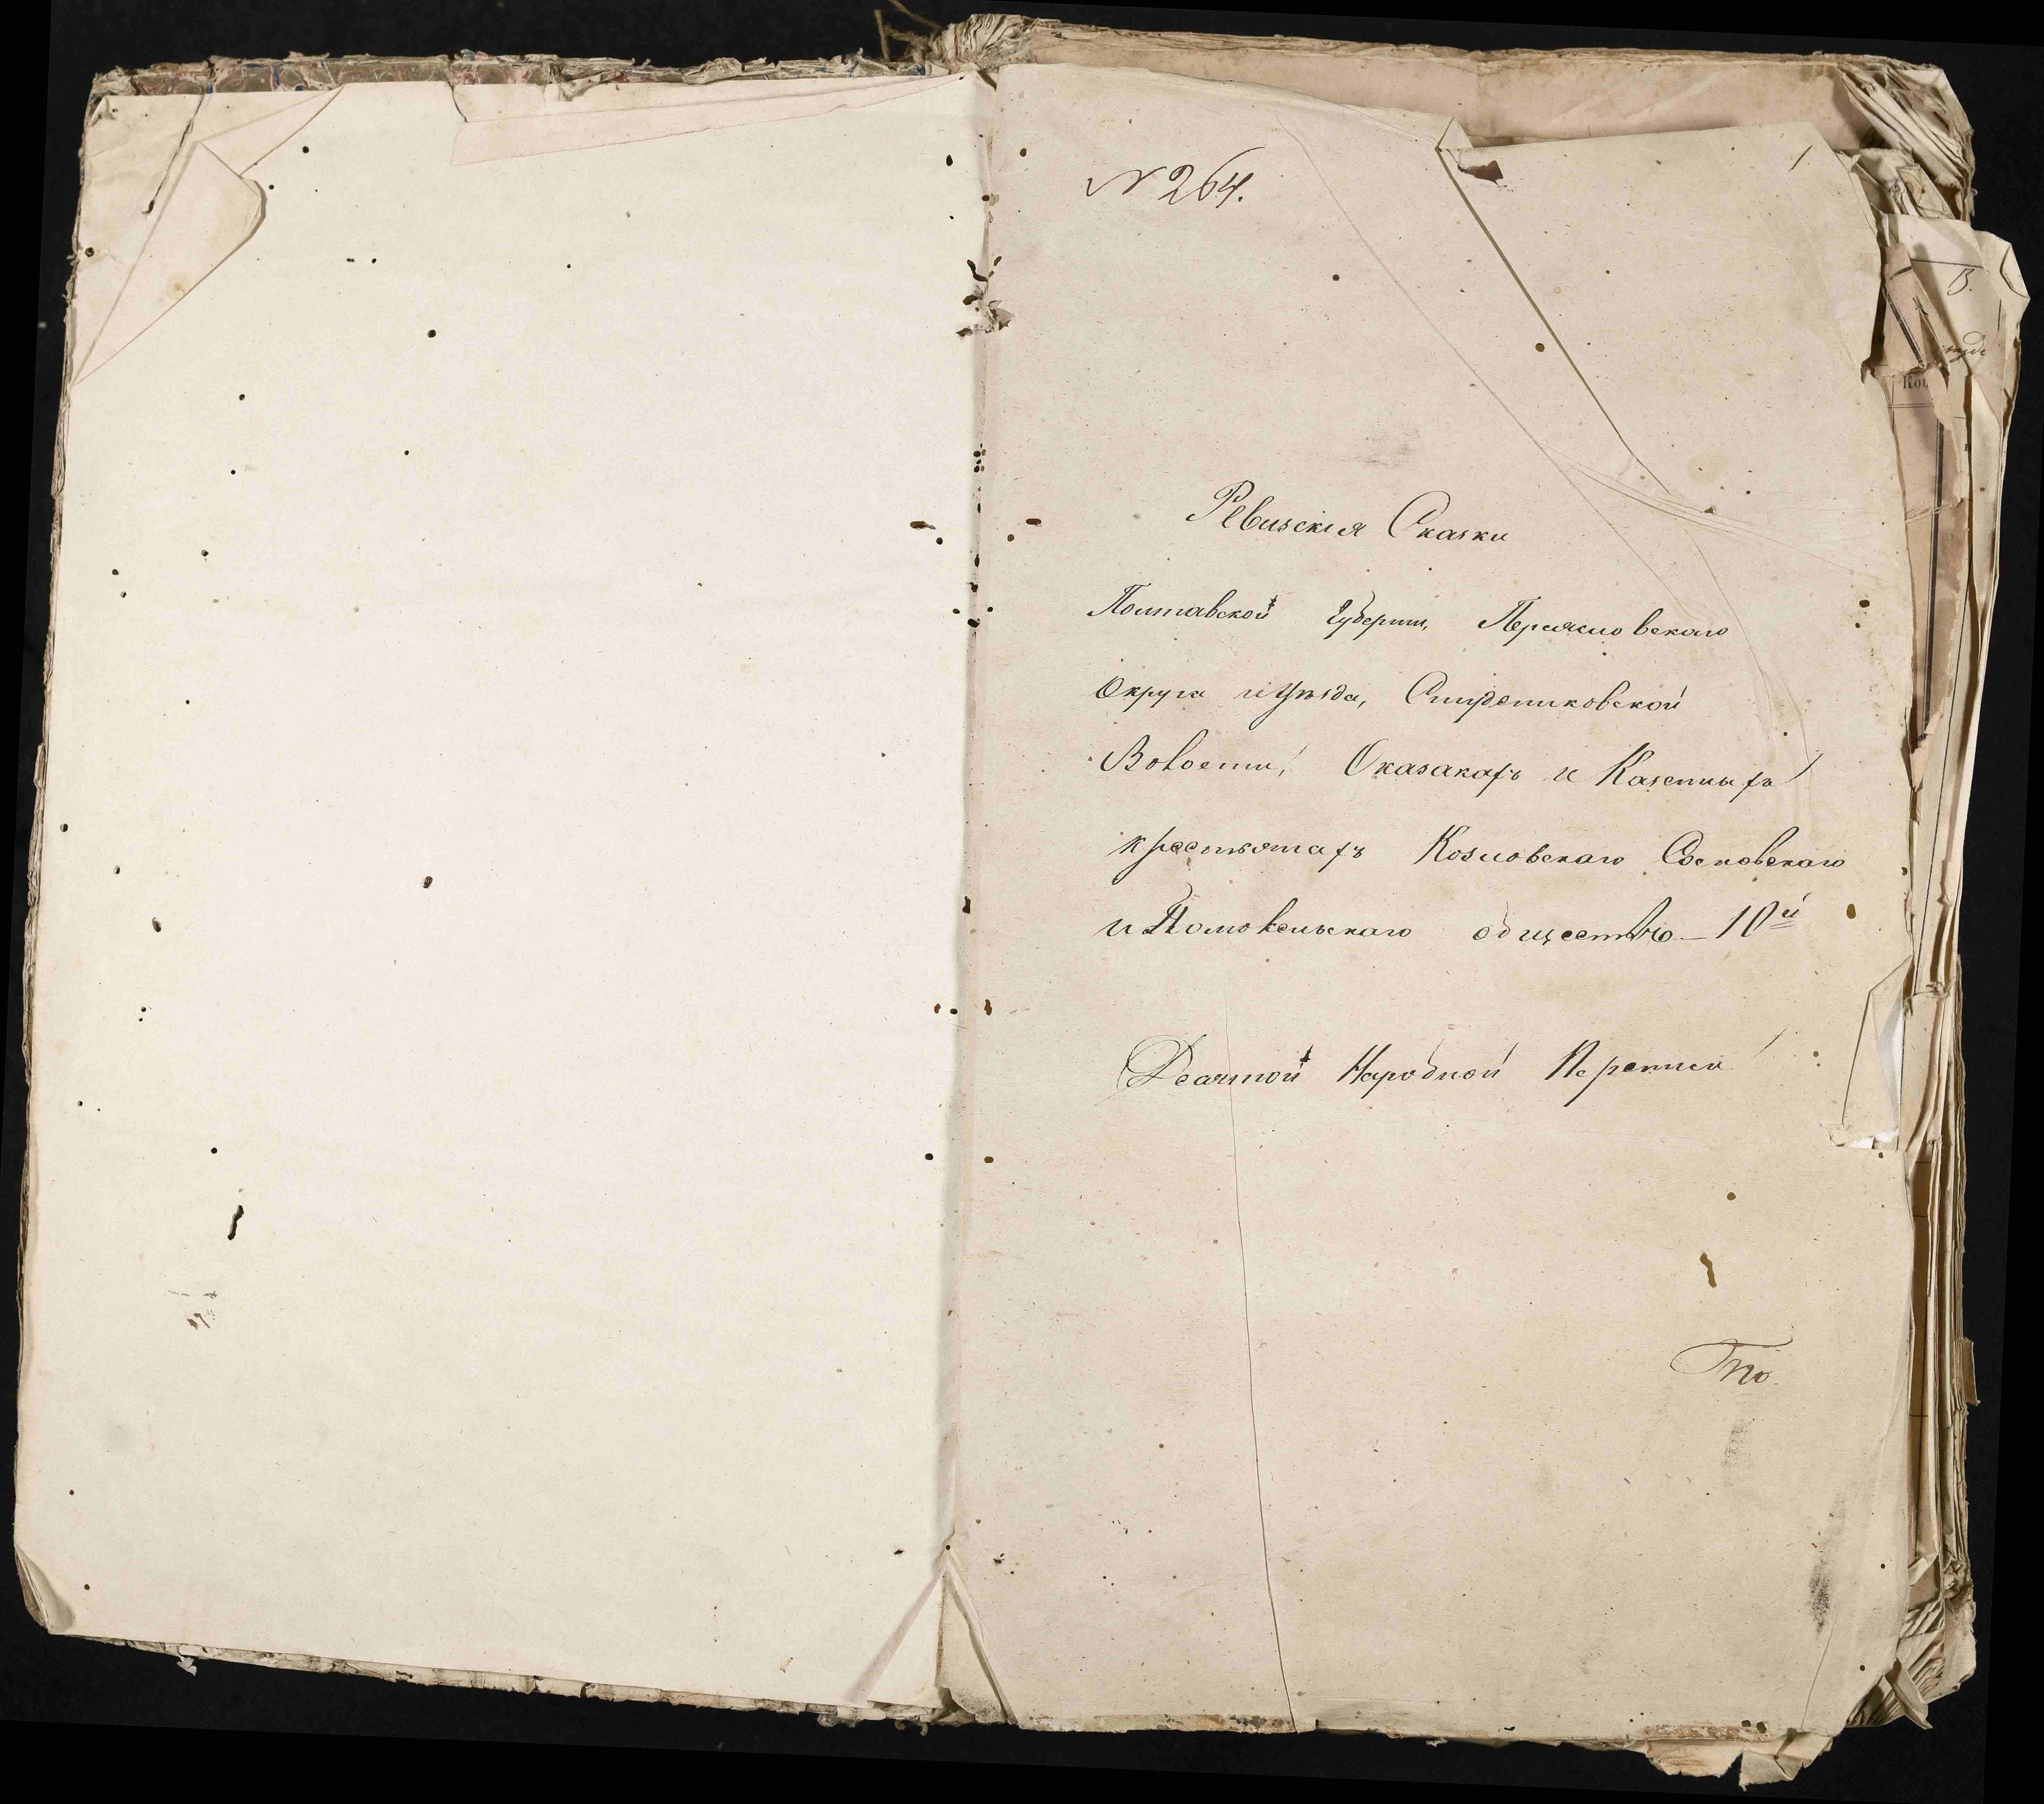 1.
№ 264.
Ревизскія Сказки
Полтавской Губерніи, Переяславскаго
Округа и Уѣзда, Студениковской
Волости, О казакахъ и Казенныхъ
крестьянахъ Козловскаго Сосновскаго
и Помокельскаго общества – 10й
Десятой Народной Переписи
В.
Кол